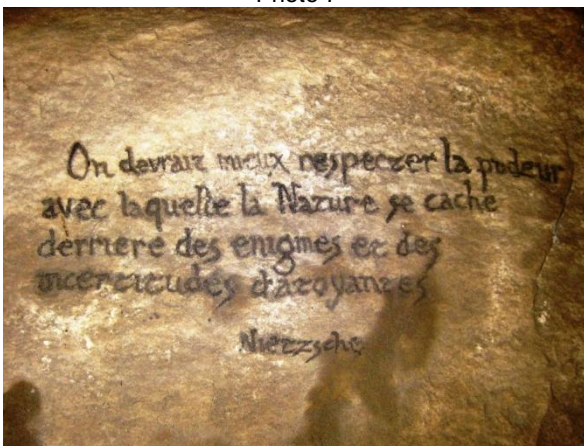 On devrait mieux respecter la pudeur
avec laquelle la Nature se cache
derriere des enigmes et des
incertitudes chatoyantes
Nietzsche